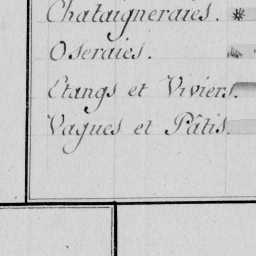 Chataigneraies.
Oseraies.
Etangs et Viviers.
Vagues et Pâtis.